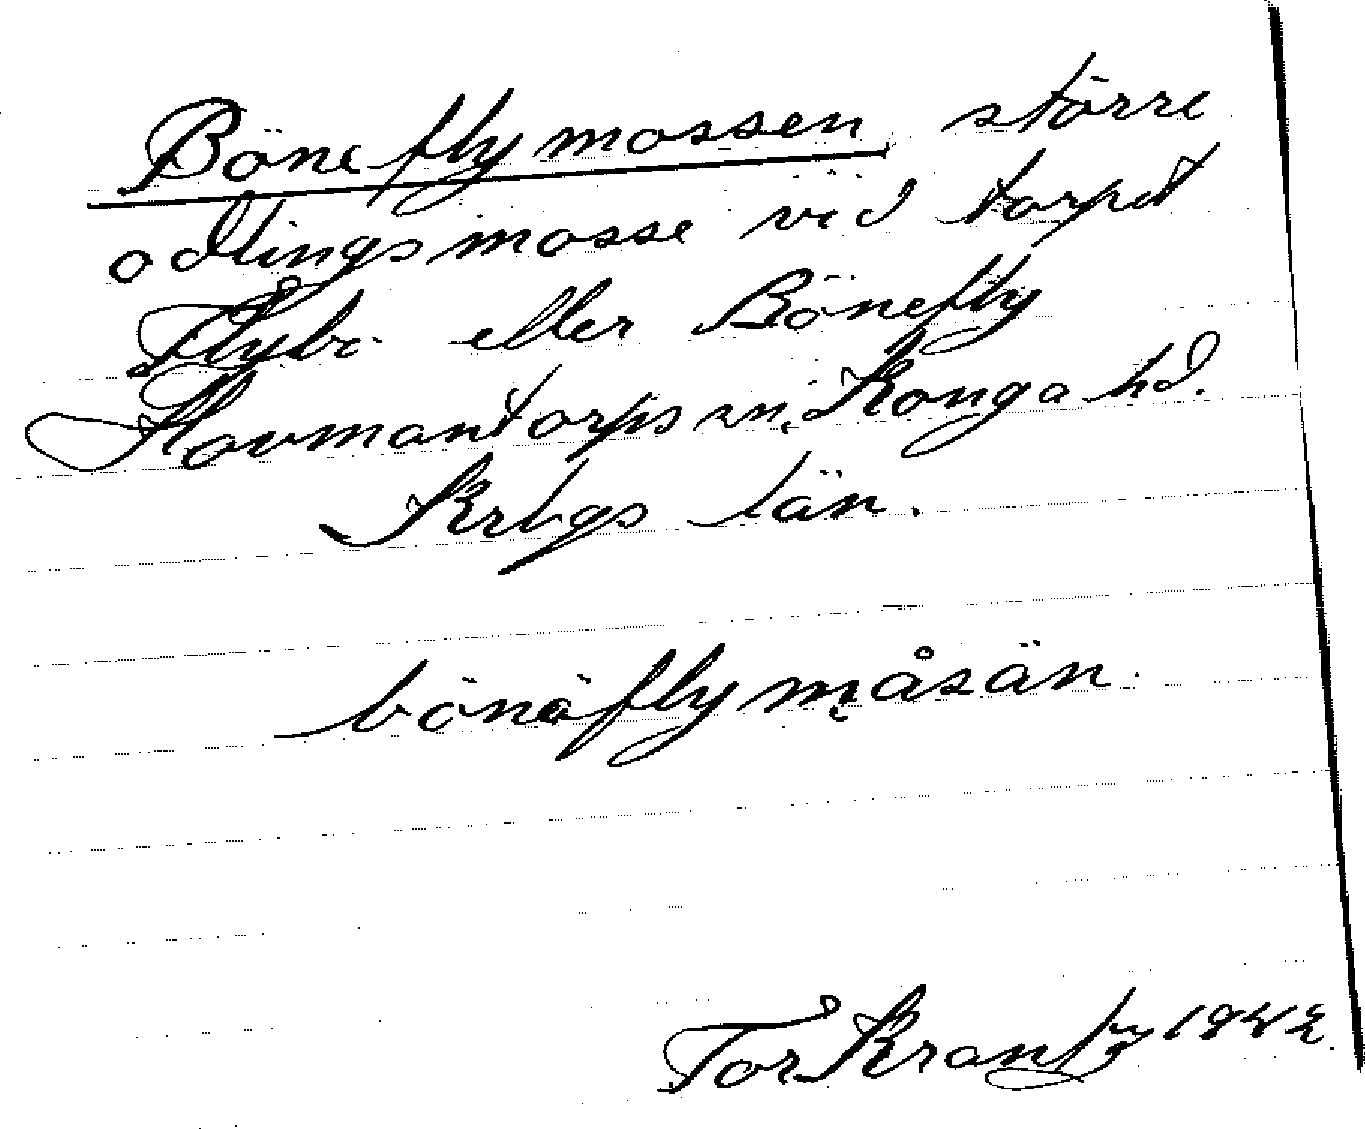 Böneflymossen större
odlingsmosse vid torpet
Flybo eller Bönefly
Hovmantorps sn, Konga hd.
Krbgs län.
bönäflymåsän.
Tor Krantz 1922